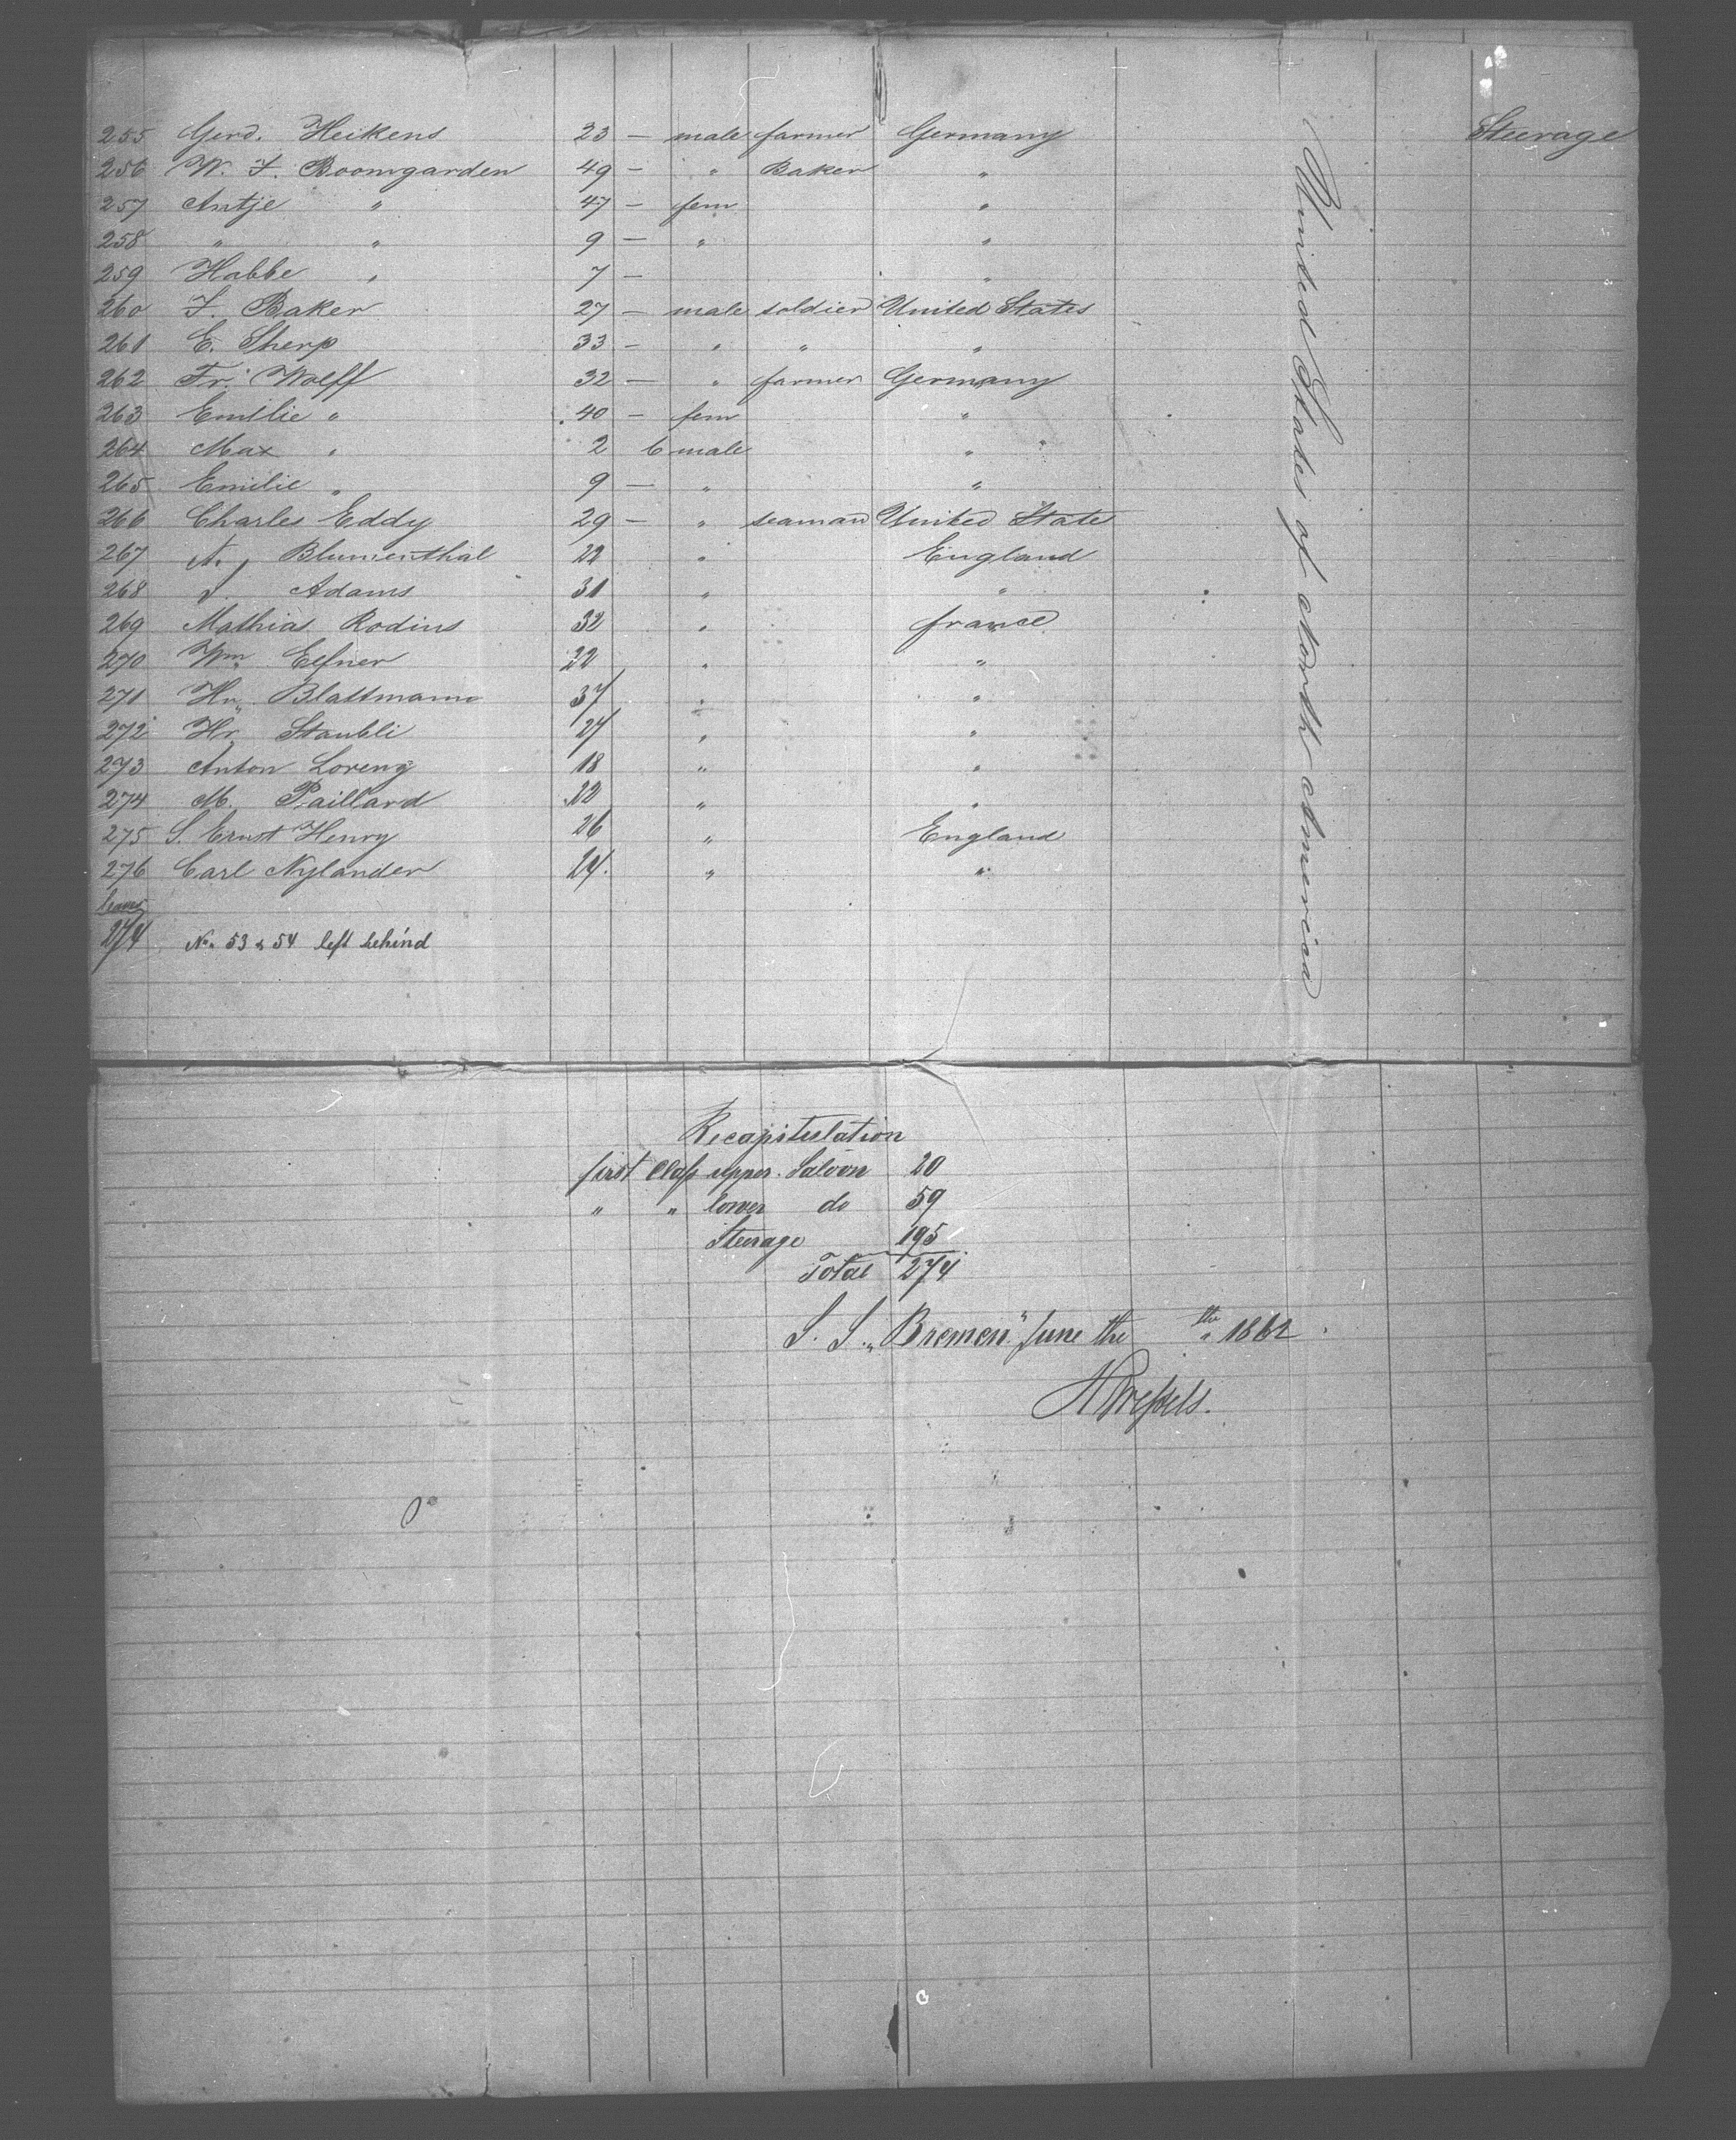 255 Gerd. Heikens 23 — male farmer Germany Steerage
256 W. F. Boomgarden 49 — " Baker "
257 Antje " 47 — fem "
258 " " 9 — " "
259 Habbe " 7 — "
260 F. Baker 27 — male soldier United States
261 E. Sherp 33 — " " "
262 Fr. Wolff 32 — " farmer Germany
263 Emilie " 40 — fem "
264 Max " 2 6 male "
265 Emilie " 9 — " "
266 Charles Eddy 29 — " seaman United States
267 A. Blumenthal 22 " England
268 J. Adams 31 " "
269 Mathias Rodius 32 " france
270 Wm. Elfner 22 " "
271 Hn. Blattmann 37 " "
272 Hr. Staubli 27 " "
273 Anton Loreng 18 " "
274 M. Paillard 22 " "
275 S. Ernst Henry 26 " England
276 Carl Nylander 24. " "
274 No. 53 & 54 left behind
United States of North America
Recapitulation
first Class upper Saloon 20
" " lower do 59
Steerage 195
Total 274
S. S. „Bremen" June the th 1862
HWessels.